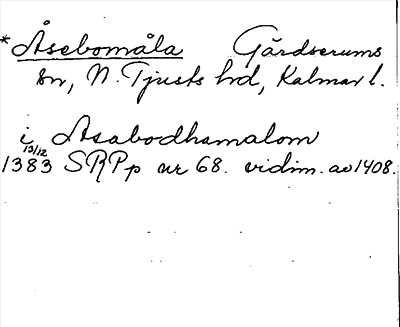 *Åsebomåla Gärdserums
sn, N. Tjusts hd, Kalmar l.
i Asabodhamalom
13/12
1383 SRPp nr 68. vidim. av 1408.